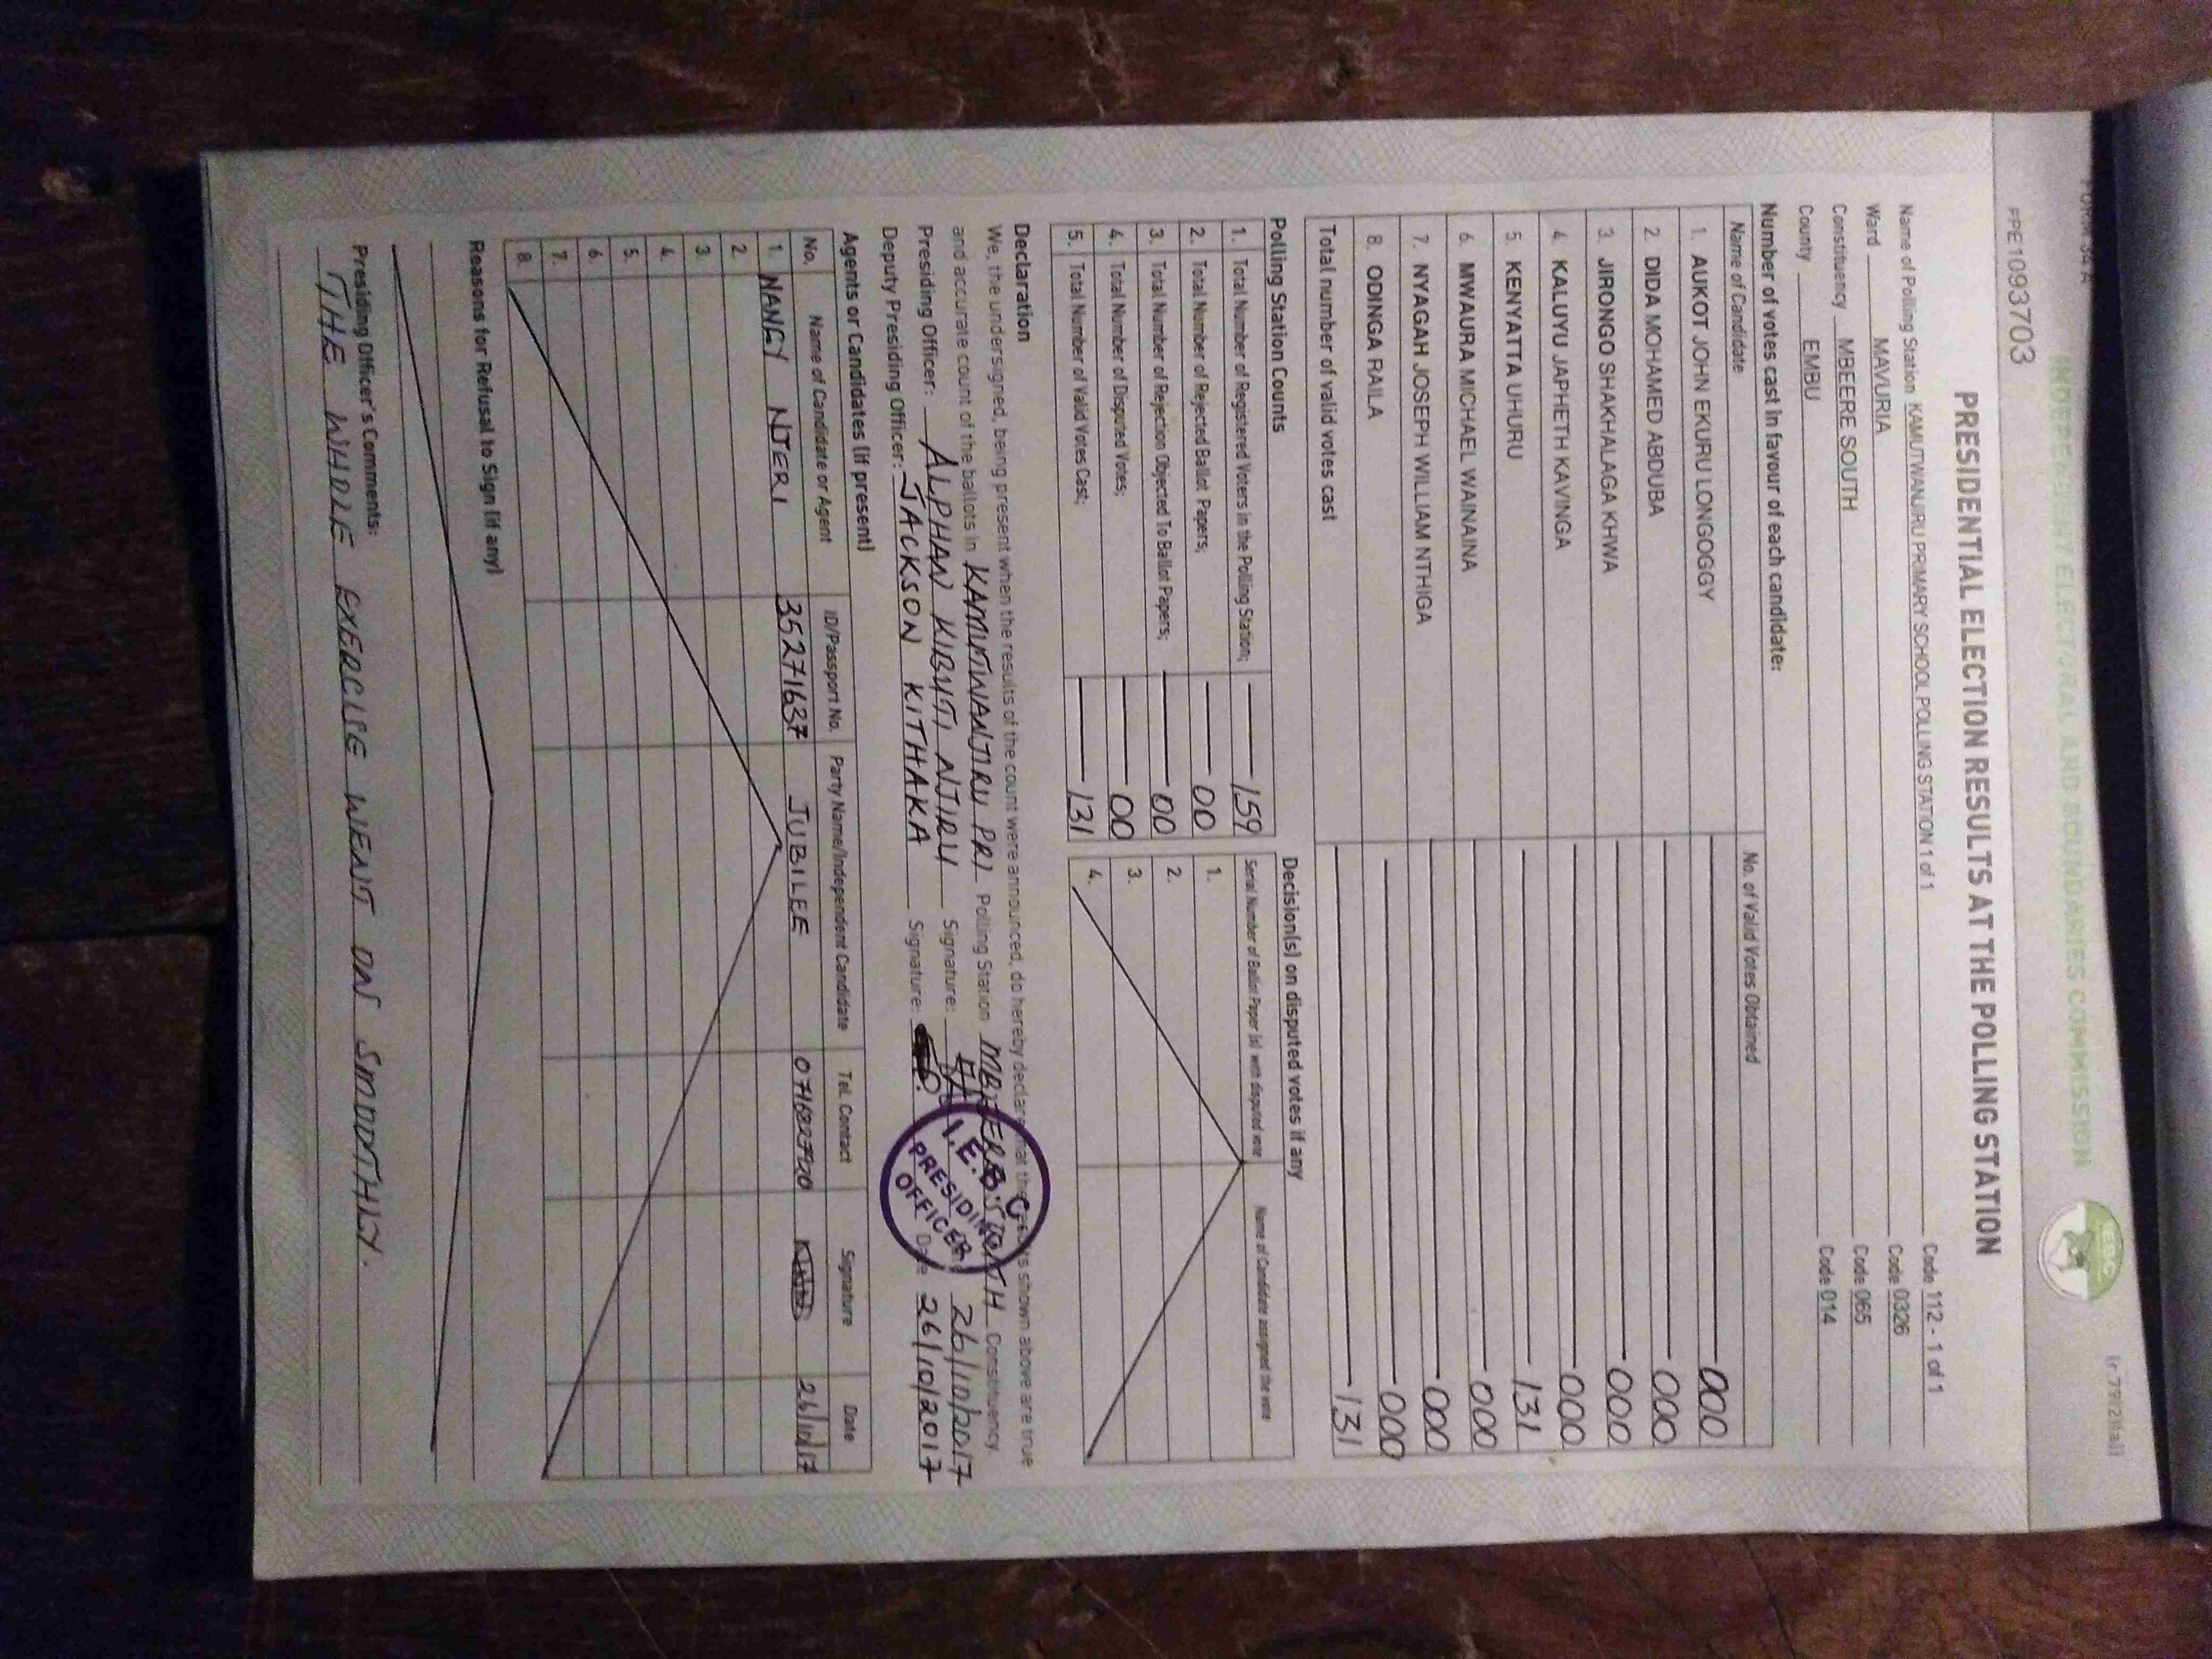 FORM 34 A
INDEPENDENT ELECTORAL AND BOUNDARIES COMMISSION
IEBC
PPE1093703
PRESIDENTIAL ELECTION RESULTS AT THE POLLING STATION
Name of Polling Station KAMUTWANJIRU PRIMARY SCHOOL POLLING STATION 1 of 1 Code 112 - 1 of 1
Ward MAVURIA Code 0326
Constituency MBEERE SOUTH Code 065
County EMBU Code 014
Number of votes cast in favour of each candidate:
Name of Candidate No. of Valid Votes Obtained
1. AUKOT JOHN EKURU LONGOGGY 000
2. DIDA MOHAMED ABDUBA 000
3. JIRONGO SHAKHALAGA KHWA 000
4. KALUYU JAPHETH KAVINGA 000
5. KENYATTA UHURU 131
6. MWAURA MICHAEL WAINAINA 000
7. NYAGAH JOSEPH WILLIAM NTHIGA 000
8. ODINGA RAILA 000
Total number of valid votes cast 131
Polling Station Counts
1. Total Number of Registered Voters in the Polling Station; 159
2. Total Number of Rejected Ballot Papers; 00
3. Total Number of Rejection Objected To Ballot Papers; 00
4. Total Number of Disputed Votes; 00
5. Total Number of Valid Votes Cast; 131
Decision(s) on disputed votes if any
Serial Number of Ballot Paper (s) with disputed vote Name of Candidate assigned the vote
1.
2.
3.
4.
Declaration
We, the undersigned, being present when the results of the count were announced, do hereby declare that the results shown above are true
and accurate count of the ballots in KAMUTWANJIRU PRI Polling Station MBEERE SOUTH Constituency.
Presiding Officer: ALPHAN KIBUTI NJIRU Signature: 26/10/2017
Deputy Presiding Officer: JACKSON KITHAKA Signature: Date 26/10/2017
I.E.B.C
PRESIDING
OFFICER
Agents or Candidates (if present)
No. Name of Candidate or Agent ID/Passport No. Party Name/Independent Candidate Tel. Contact Signature Date
1. NANCY NJERI 35271637 JUBILEE 26/10/17
2.
3.
4.
5.
6.
7.
8.
Reasons for Refusal to Sign (if any)
Presiding Officer's Comments:
THE WHOLE EXERCISE WENT ON SMOOTHLY.